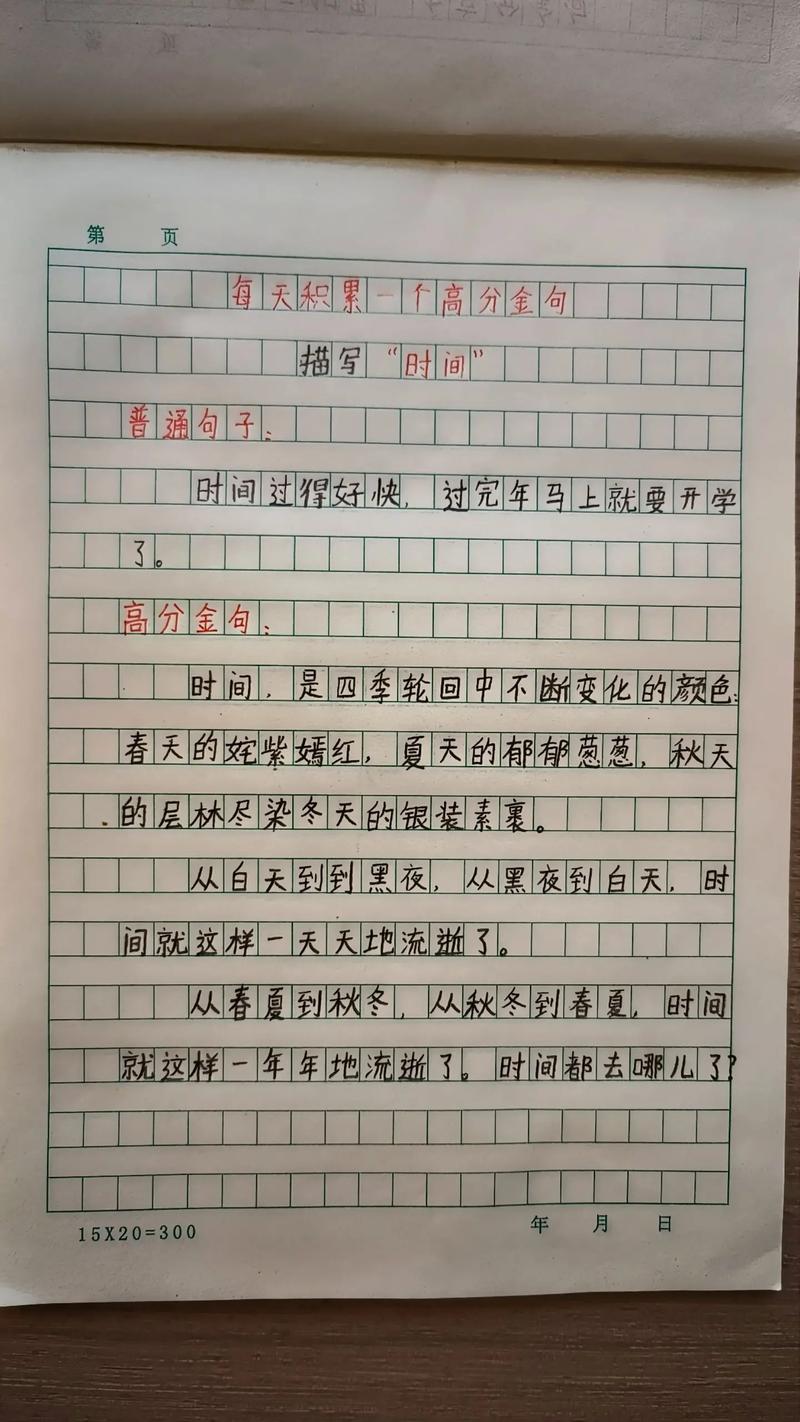 第 页
每天积累一个高分金句
描写“时间”
普通句子：
时间过得好快，过完年马上就要开学
了。
高分金句：
时间，是四季轮回中不断变化的颜色：
春天的姹紫嫣红，夏天的郁郁葱葱，秋天
的层林尽染冬天的银装素裹。
从白天到到黑夜，从黑夜到白天，时
间就这样一天天地流逝了。
从春夏到秋冬，从秋冬到春夏，时间
就这样一年年地流逝了。时间都去哪儿了？
15X20=300 年 月 日